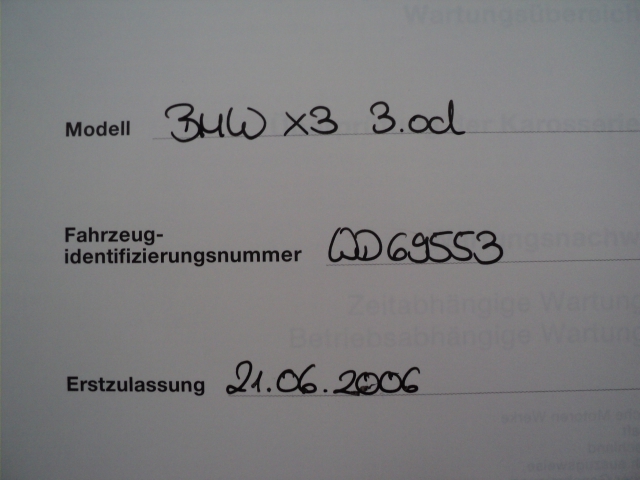 Wartungsübersich
Modell BMW X3 3.0d
Fahrzeug-
identifizierungsnummer WD69553
Zeitabhängige Wartung
Betriebsabhängige Wartung
Erstzulassung 21.06.2006